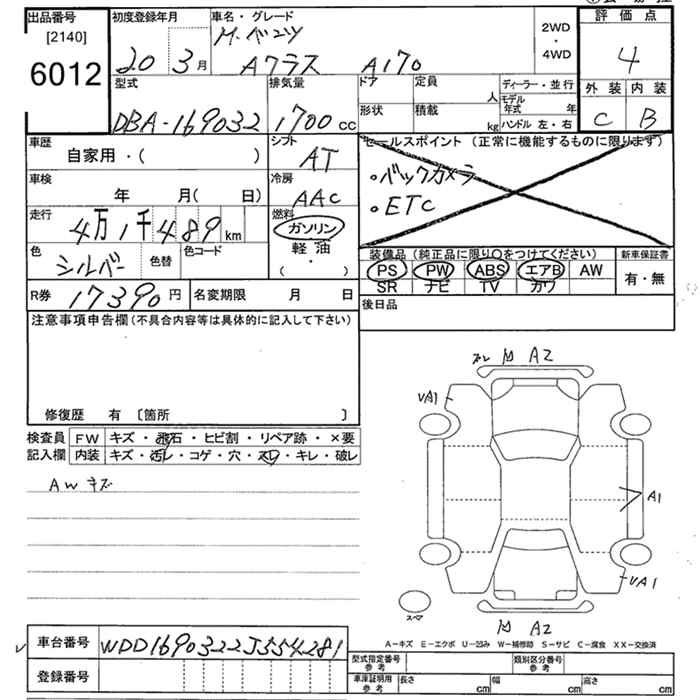 出品番号 初度登録年月 車名・グレード 評価点
[2140] M.ベンツ 2WD
6012 20 3月 Aクラス A170 ・ 4WD 4
型式 排気量 ドア 定員 人 ディーラー・並行 外装 内装
DBA-169032 1700cc 形状 積載 kg モデル年式 年 C B
ハンドル 左・右
車歴 シフト セールスポイント(正常に機能するものに限ります)
自家用・( ) AT
車検 冷房 ・バックカメラ
年 月( 日) AAC ・ETC
走行 燃料
4万1千489km ガソリン
色 色替 色コード 軽油 装備品(純正品に限り○をつけてください) 新車保証書
シルバー ・( ) PS PW ABS エアB AW 有・無
SR ナビ TV カワ
R券 17390円 名変期限 月 日 後日品
注意事項申告欄(不具合内容等は具体的に記入して下さい)
修復歴 有 [箇所 ]
検査員 FW キズ・飛石・ヒビ割・リペア跡・×要
記入欄 内装 キズ・汚レ・コゲ・穴・スレ・キレ・破レ
AWキズ
A2
UA1
A1
UA1
スペア
A2
A-キズ E-エクボ U-凹み W-補修跡 S-サビ C-腐食 XX-交換済
車台番号 WDD1690322J554281
登録番号
型式指定番号 参考 類別区分番号 参考
車庫証明用 参考 長さ cm 幅 cm 高さ cm